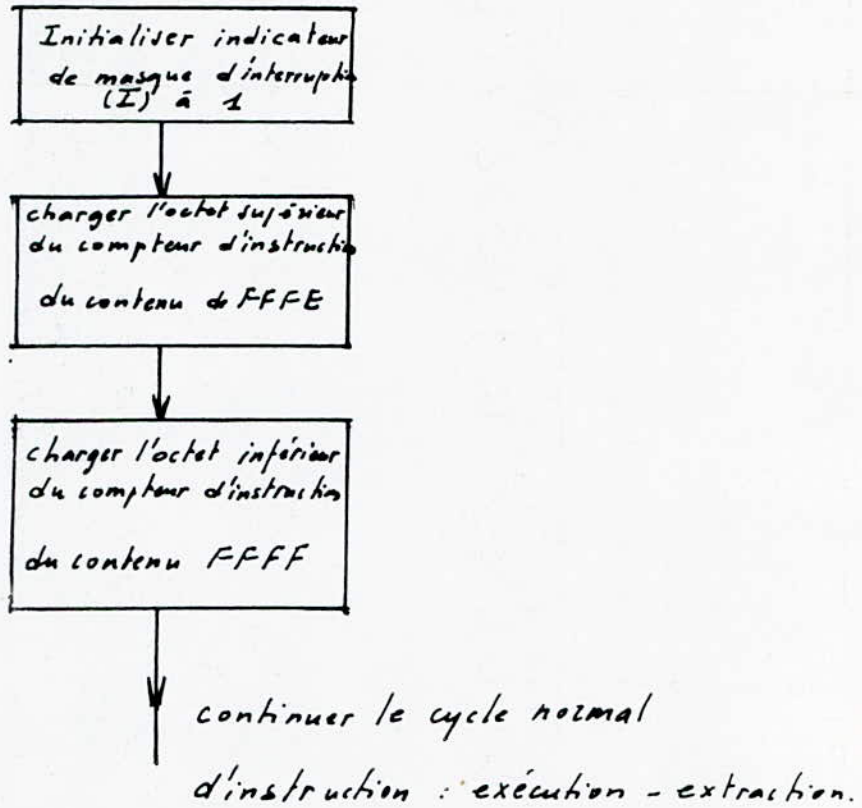 Initialiser indicateur
de masque d'interruption
(I) à 1
charger l'octet supérieur
du compteur d'instruction
du contenu de FFFE
charger l'octet inférieur
du compteur d'instruction
du contenu FFFF
continuer le cycle normal
d'instruction : exécution - extraction.